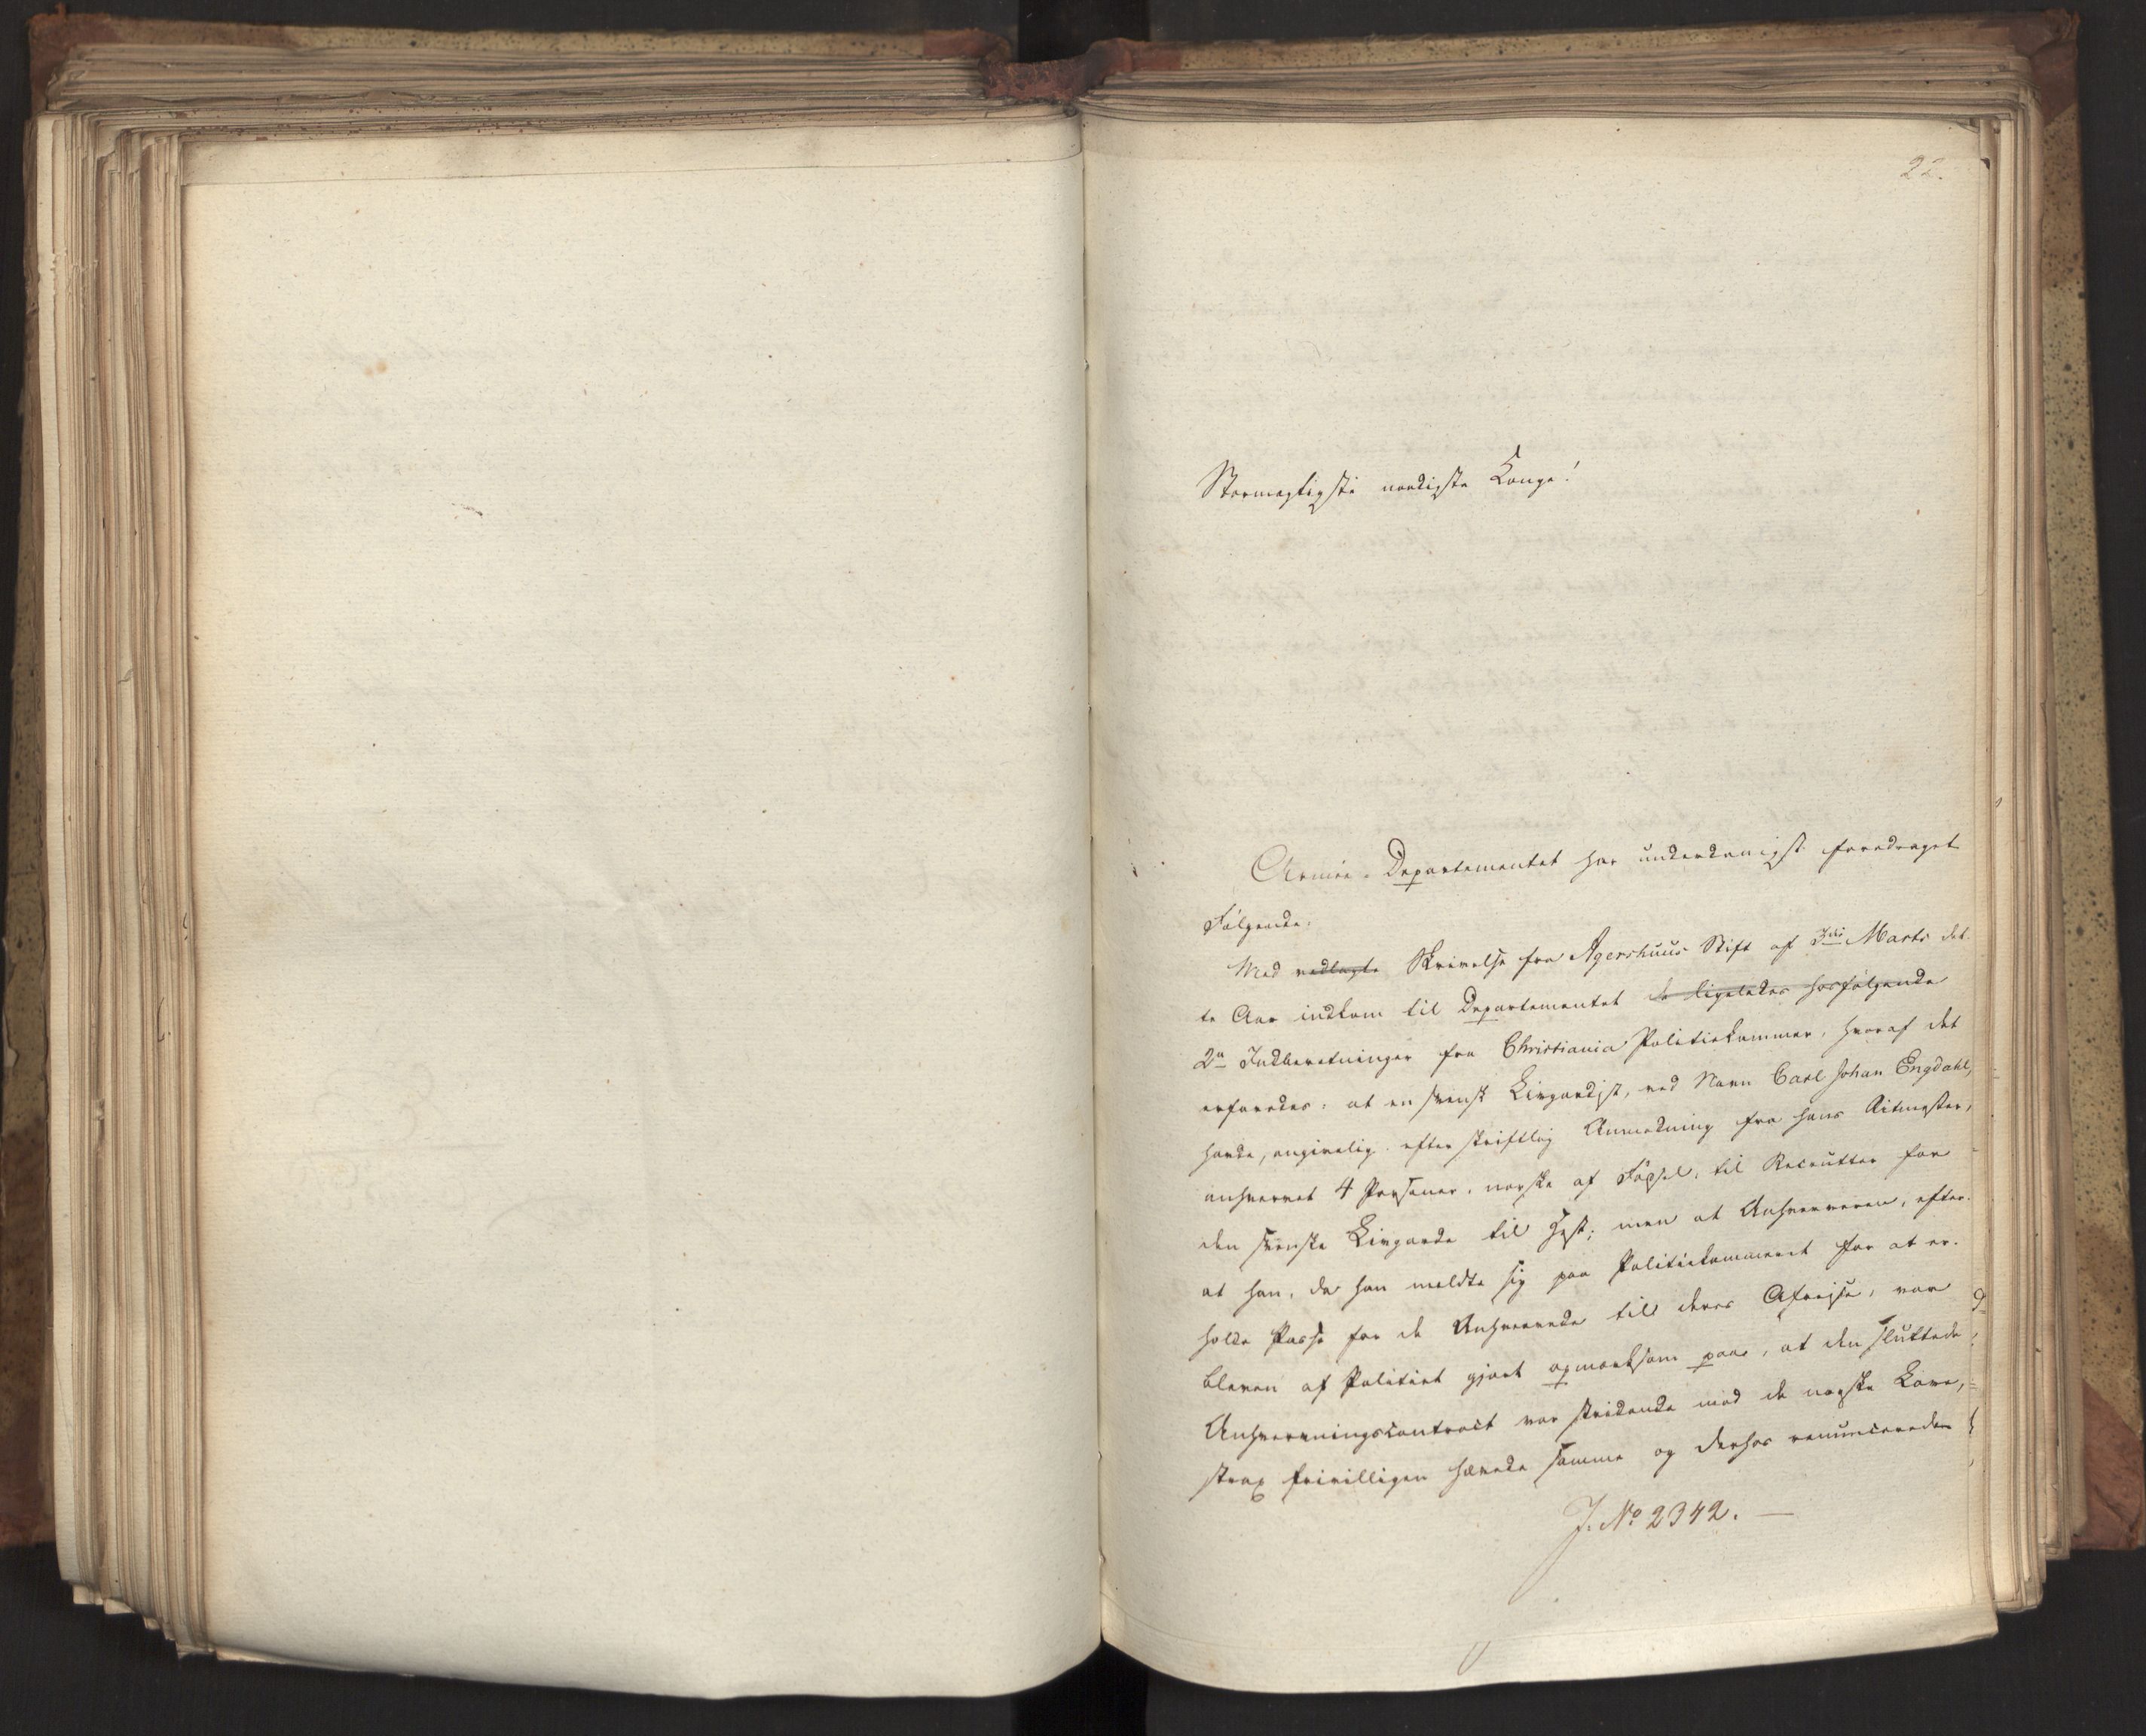 22.
Stormægtigste naadigste Konge!
Armee-Departementet har underdanigst foredraget
Følgende:
Med vedlagte Skrivelse fra Agershuus Stift af 3die Marts det-
te Aar indkom til Departementet de ligeledes hosfølgende
2de Indberetninger fra Christiania Politiekammer, hvoraf det
erfaredes: at en svensk Livgardist, ved Navn Carl Johan Engdahl,
havde, angivelig efter skriftlig Anmodning fra hans Ritmester,
anhvervet 4 Personer, norske af Fødsel, til Recrutter for
den svenske Livgarde til Hest; men at Anhververen, efter-
at han, da han meldte sig paa Politiekammeret for at er-
holde Passe for de Anhvervede til deres Afreise, var
bleven af Politiet gjort opmærksom paa, at den sluttede
Anhvervningscontract var stridende mod de norske Love,
strax frivilligen hævede samme og derhos renuncerede
J. No 2342. —